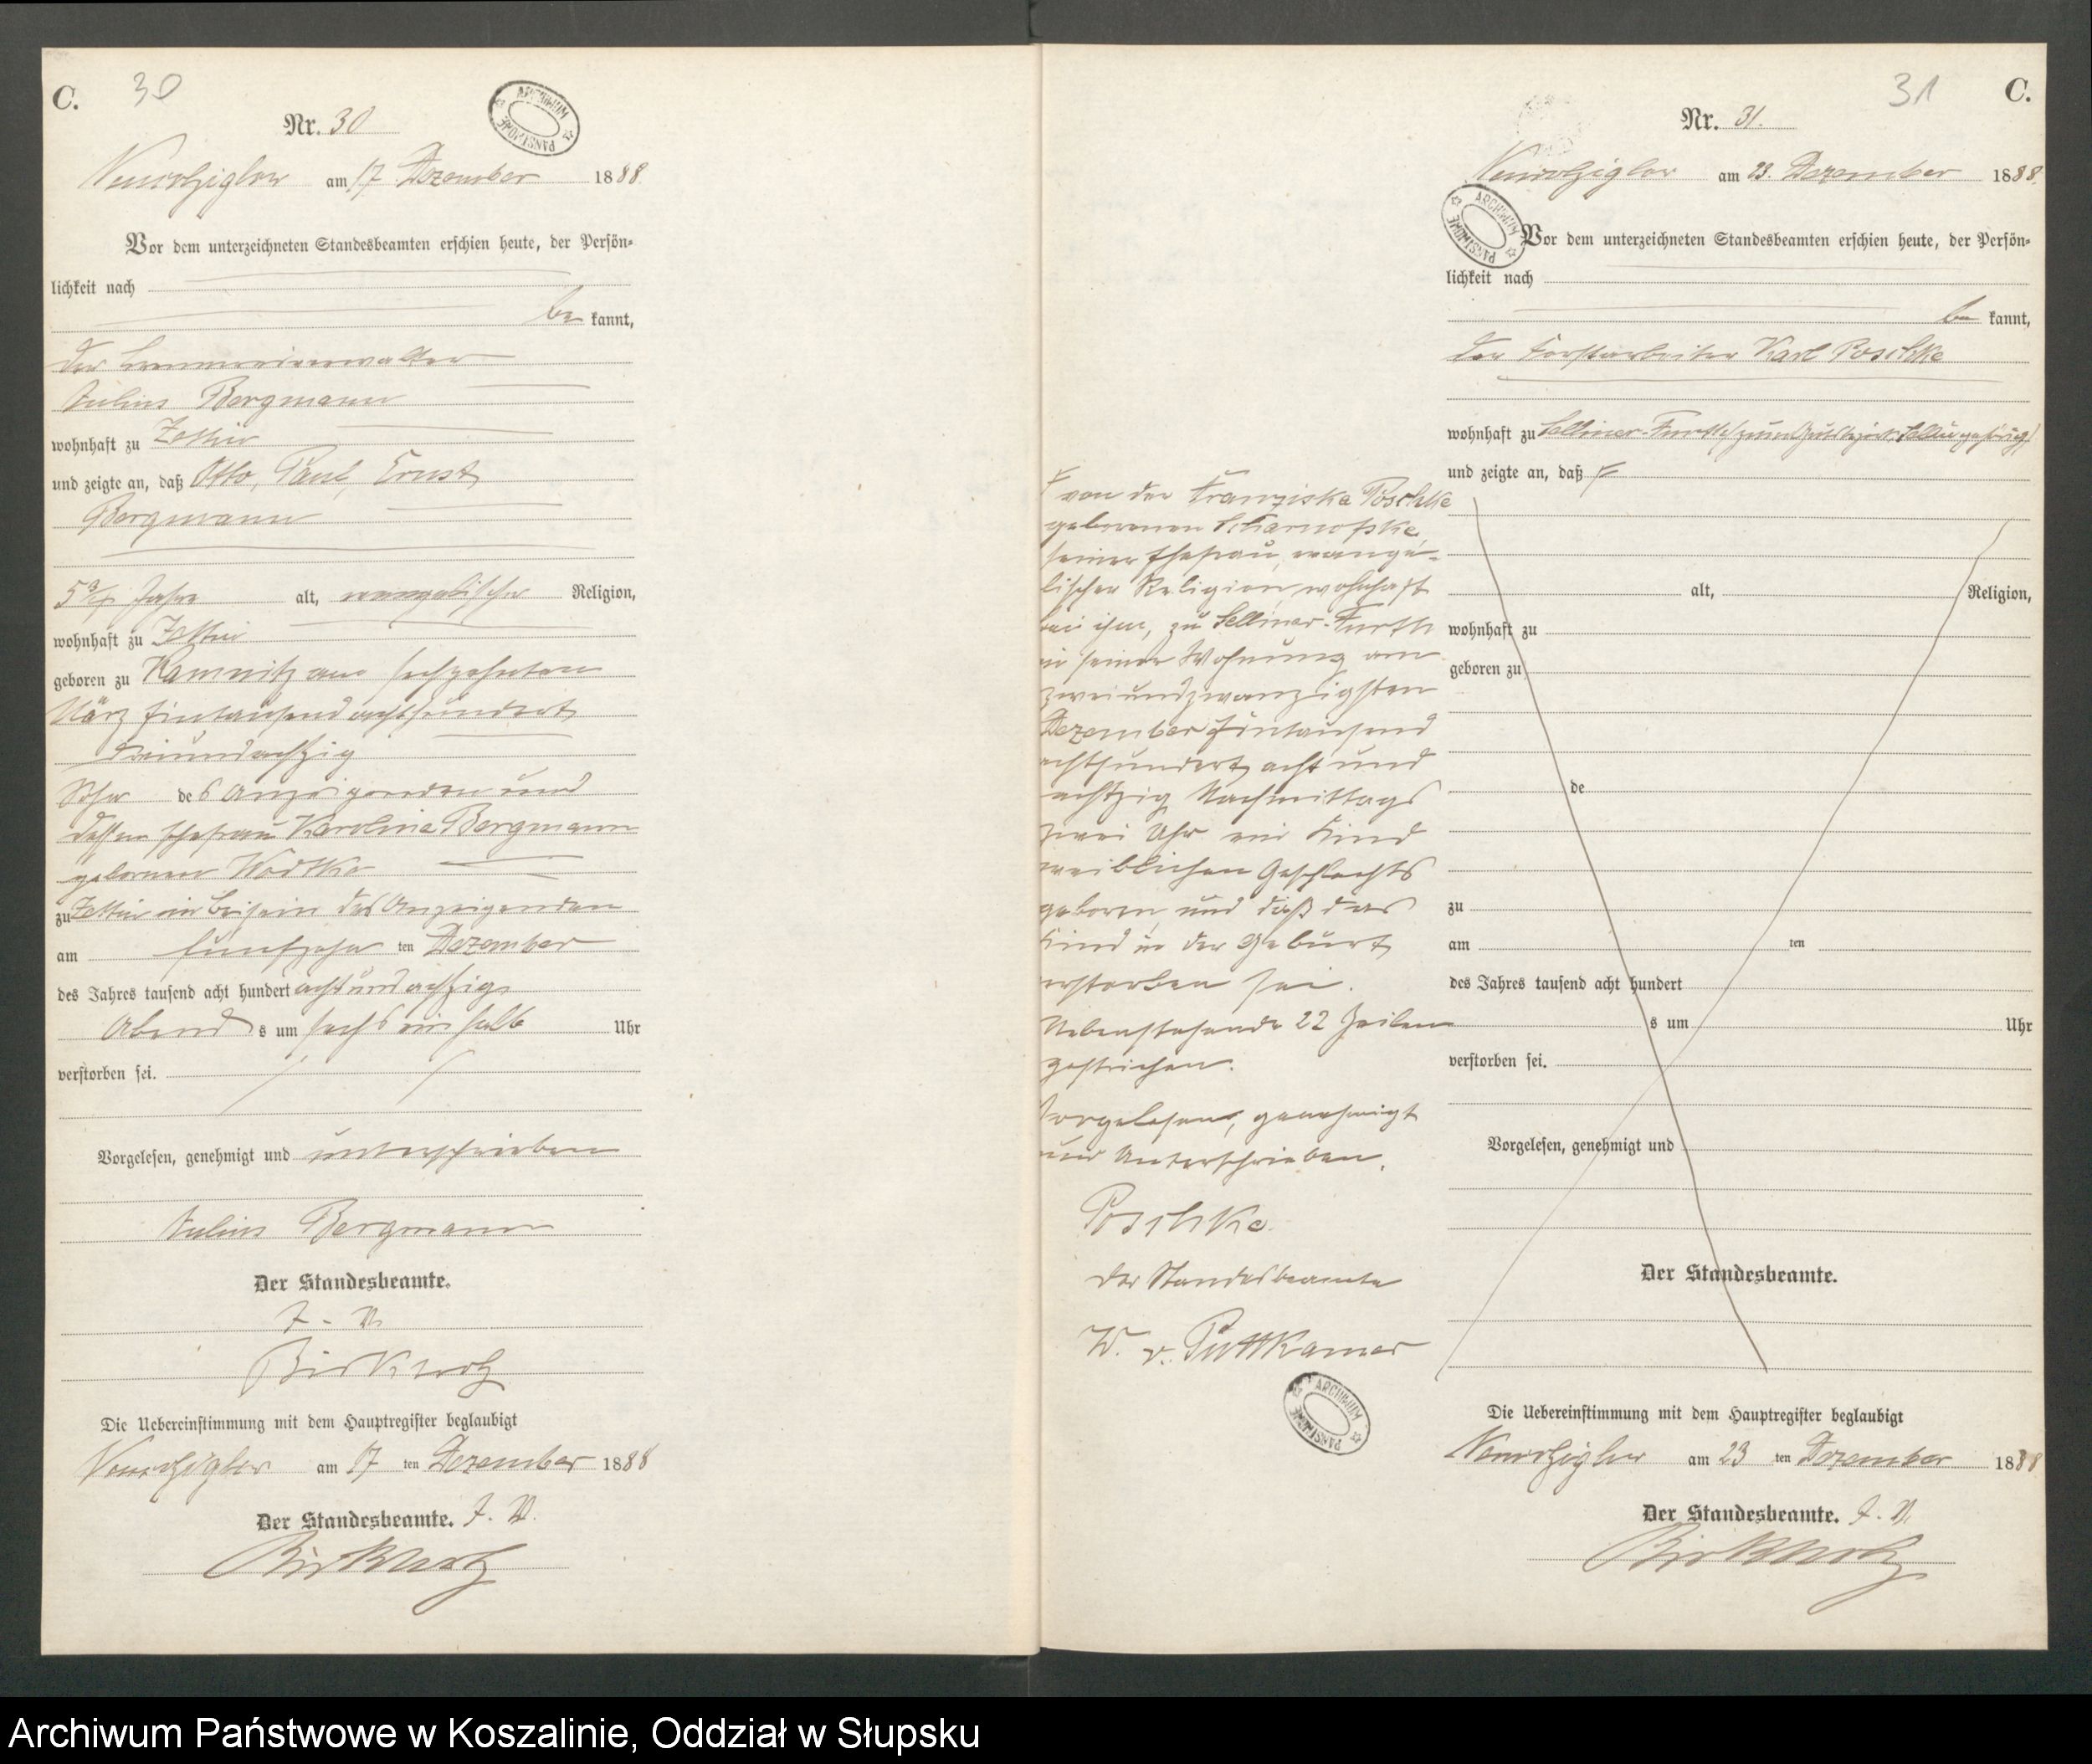 C. 30
Nr. 30
ARCHIWUM PAŃSTWOWE
am 17 Dezember 1888
Vor dem unterzeichneten Standesbeamten erschien heute, der Persön-
lichkeit nach
be kannt,
der
Julius Bergmann
wohnhaft zu Zettin
und zeigte an, daß Otto, Paul, Ernst
Bergmann
5 3/4 Jahre alt, evangelischer Religion,
wohnhaft zu Zettin
geboren zu Kamnitz am sechzehnten
März Eintausend achthundert
dreiundachtzig
Sohn des Anzeigenden und
dessen Ehefrau Karoline Bergmann
geborenen Wodtke
zu Zettin im Beisein des Anzeigenden
am fünfzehn ten Dezember
des Jahres tausend acht hundert achtundachtzig
Abend s um sechs ein halb Uhr
verstorben sei.
Vorgelesen, genehmigt und unterschrieben
Julius Bergmann
Der Standesbeamte.
J. V.
Birkholz
Die Uebereinstimmung mit dem Hauptregister beglaubigt
am 17 ten Dezember 1888
Der Standesbeamte. J. V.
Birkholz
31 C.
Nr. 31.
am 23. Dezember 1888
ARCHIWUM PAŃSTWOWE
Vor dem unterzeichneten Standesbeamten erschien heute, der Persön-
lichkeit nach
be kannt,
der Forstarbeiter Karl Poschke
wohnhaft zu Selliner-Furth (zum Gutsbezirk Sellin gehörig)
und zeigte an, daß
von der Franziska Poschke
geborenen
seiner Ehefrau, evange-
lischer Religion, wohnhaft
bei ihm, zu Selliner-Furth
in seiner Wohnung am
zweiundzwanzigsten
Dezember Eintausend
achthundert acht und
achtzig Nachmittags
zwei Uhr ein Kind
weiblichen Geschlechts
geboren und daß das
Kind in der Geburt
verstorben sei.
Nebenstehende 22 Zeilen
gestrichen.
Vorgelesen, genehmigt
und Unterschrieben.
Poschke
Der Standesbeamte
W. v. Puttkamer
ARCHIWUM PAŃSTWOWE
alt, Religion,
wohnhaft zu
geboren zu
de
zu
am ten
des Jahres tausend acht hundert
s um Uhr
verstorben sei.
Vorgelesen, genehmigt und
Der Standesbeamte.
Die Uebereinstimmung mit dem Hauptregister beglaubigt
am 23 ten Dezember 1888
Der Standesbeamte. J. V.
Birkholz
Archiwum Państwowe w Koszalinie, Oddział w Słupsku